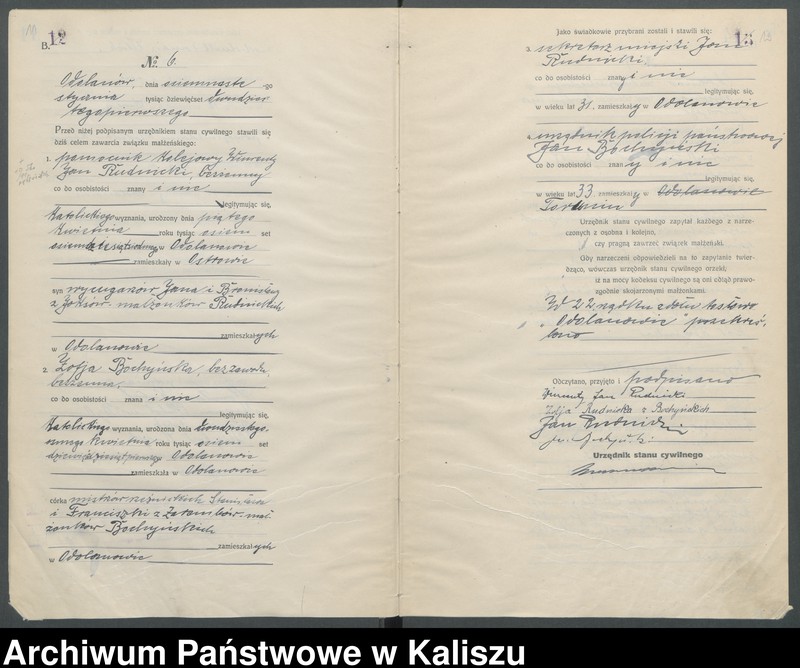 B. 12
№ 6.
Odolanów, dnia siemnaste -go
stycznia tysiąc dziewięćset dwudzies
tegopierwszego
Przed niżej podpisanym urzędnikiem stanu cywilnego stawili się
dziś celem zawarcia związku małżeńskiego:
1. pomocnik kolejowy Wincenty
Jan Rudnicki, bezżenny
co do osobistości znany i nie
legitymując się,
katolickiego wyznania, urodzony dnia piątego
kwietnia roku tysiąc osiem set
w Odolanowie
zamieszkały w Ostrowie
syn Jana i
z małżonków Rudnickich
zamieszkałych
w Odolanowie
2. Zofja Bochyńska, bez zawodu,
bezżenna,
co do osobistości znana i nie
legitymując się,
katolickiego wyznania, urodzona dnia dwudziestego
kwietnia roku tysiąc osiem set
w Odolanowie
zamieszkała w Odolanowie
córka mistrzów rzeźnickich Stanisława
i Franciszki z mał-
żonków Bochyńskich
zamieszkałych
w Odolanowie
13
Jako świadkowie przybrani zostali i stawili się:
sekretarz miejski Jan
Rudnicki
co do osobistości znany i nie
legitymując się,
w wieku lat 31, zamieszkały w Odolanowie
urzędnik policji państwowej
Jan Bochyński
co do osobistości znany i nie
legitymując się,
w wieku lat 33 zamieszkały w Odolanowie
Urzędnik stanu cywilnego zapytał każdego z narze-
czonych z osobna i kolejno,
czy pragną zawrzeć związek małżeński.
Gdy narzeczeni odpowiedzieli na to zapytanie twier-
dząco, wówczas urzędnik stanu cywilnego orzekł,
iż na mocy kodeksu cywilnego są uni odtąd prawo-
zgodnie skojarzonymi małżonkami.
W 22 rządku z dołu słowo
„Odolanowie” przekreś-
lono
Odczytano, przyjęto i podpisano
Wincenty Jan Rudnicki
Zofja Rudnicka z Bochyńskich
Jan Rudnicki
Urzędnik stanu cywilnego
Archiwum Państwowe w Kaliszu